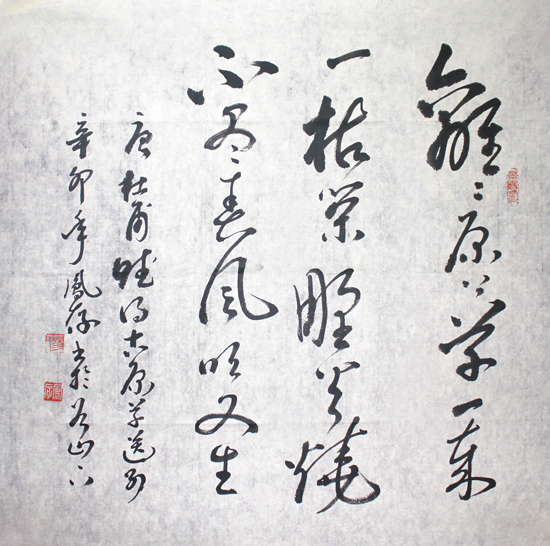 離〻原上草一歲
一枯榮野火燒
不盡春風吹又生
唐杜甫賦得古原草送別
辛卯年鳳存書於山下